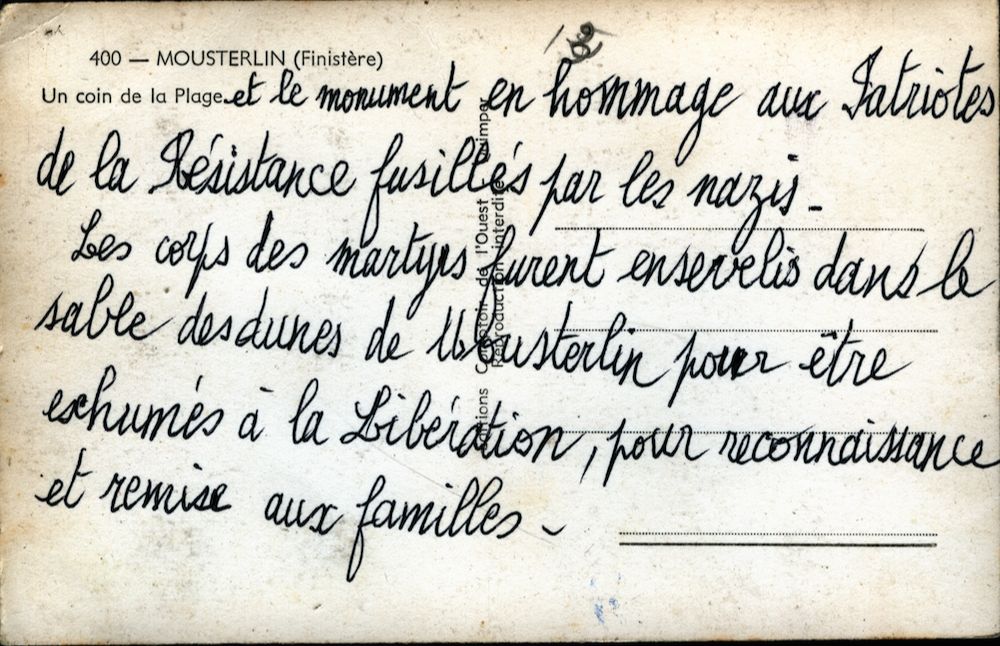 400 — MOUSTERLIN (Finistère)
Un coin de la Plage et le monument en hommage aux Patriotes
de la Résistance fusillés par les nazis_
Les corps des martyrs furent enservelis dans le
sable des dunes de Mousterlin pour être
exhumés à la Libération, pour reconnaissance
et remise aux familles -
Editions Comptoir de l'Ouest Quimper
Reproduction interdite